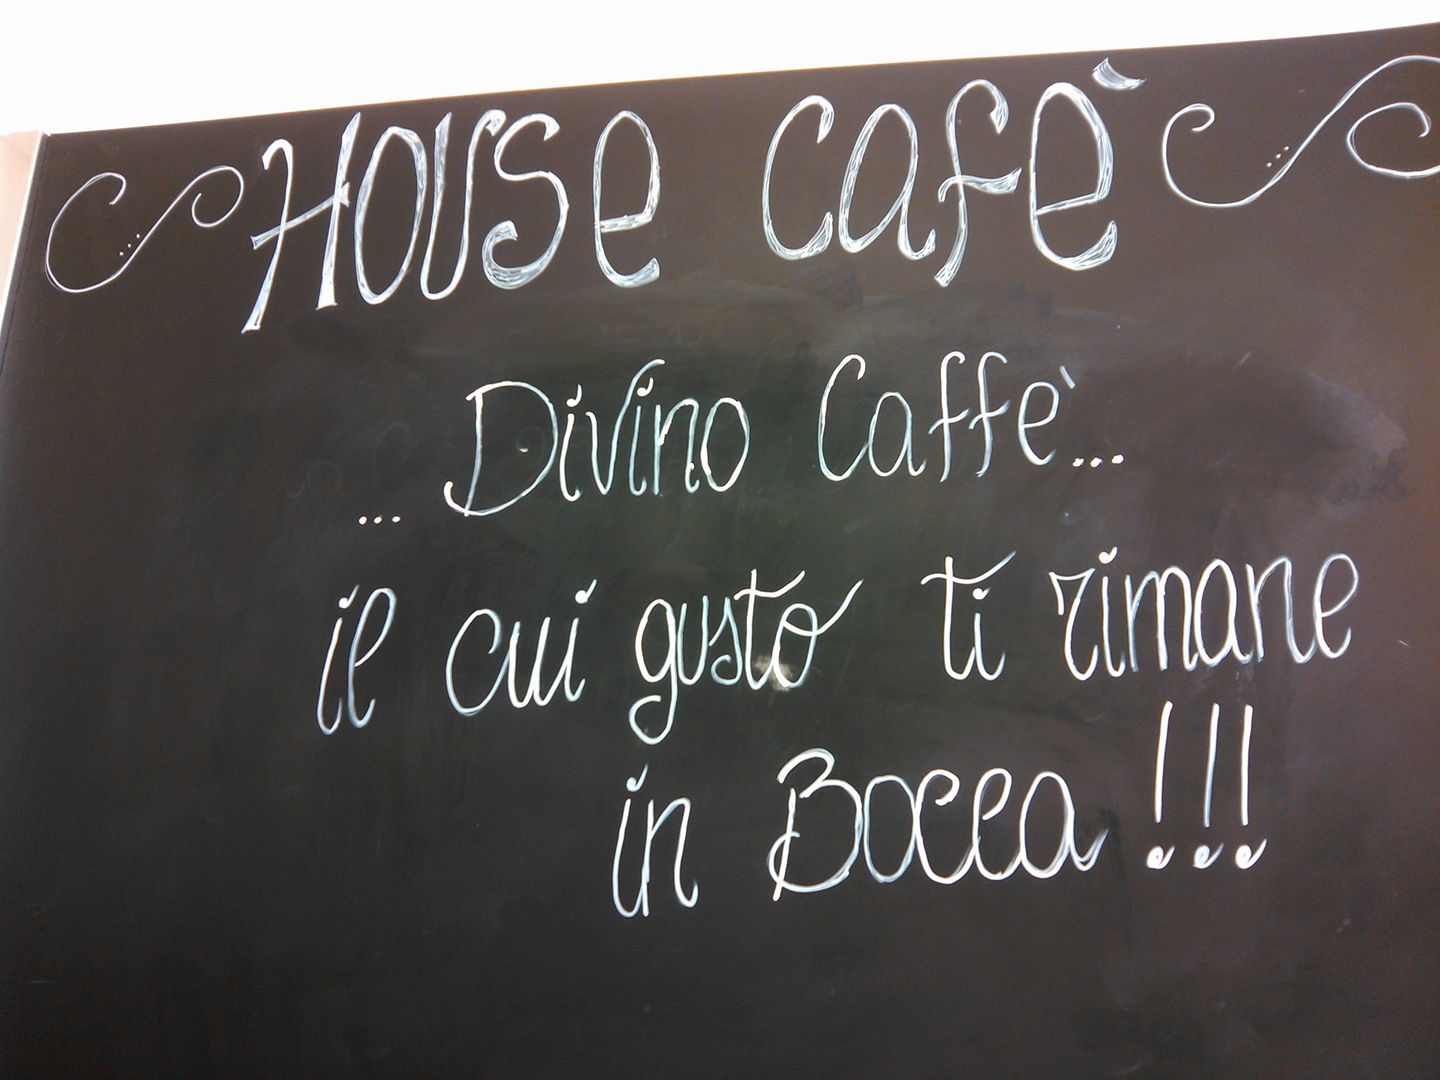 House Cafè
... Divino Caffè...
il cui gusto ti rimane
in Bocca !!!